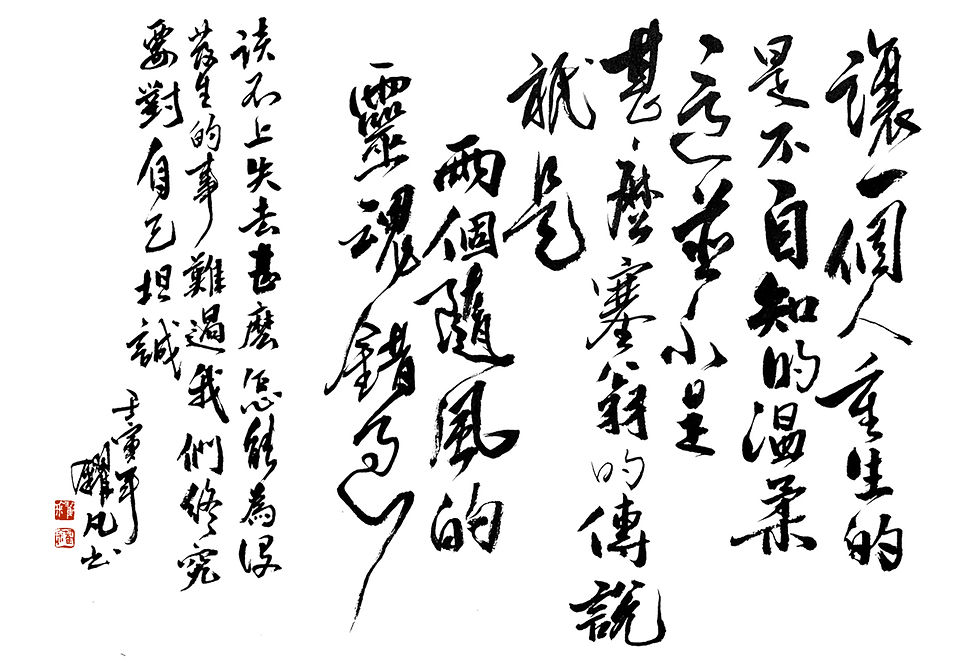 讓一個人重生的
是不自知的温柔
這並不是
甚麼塞翁的傳說
祇是
兩個隨風的
靈魂錯過
談不上失去甚麼怎能為沒
發生的事難過我們終究
要對自己坦誠
壬寅年
耀凡书